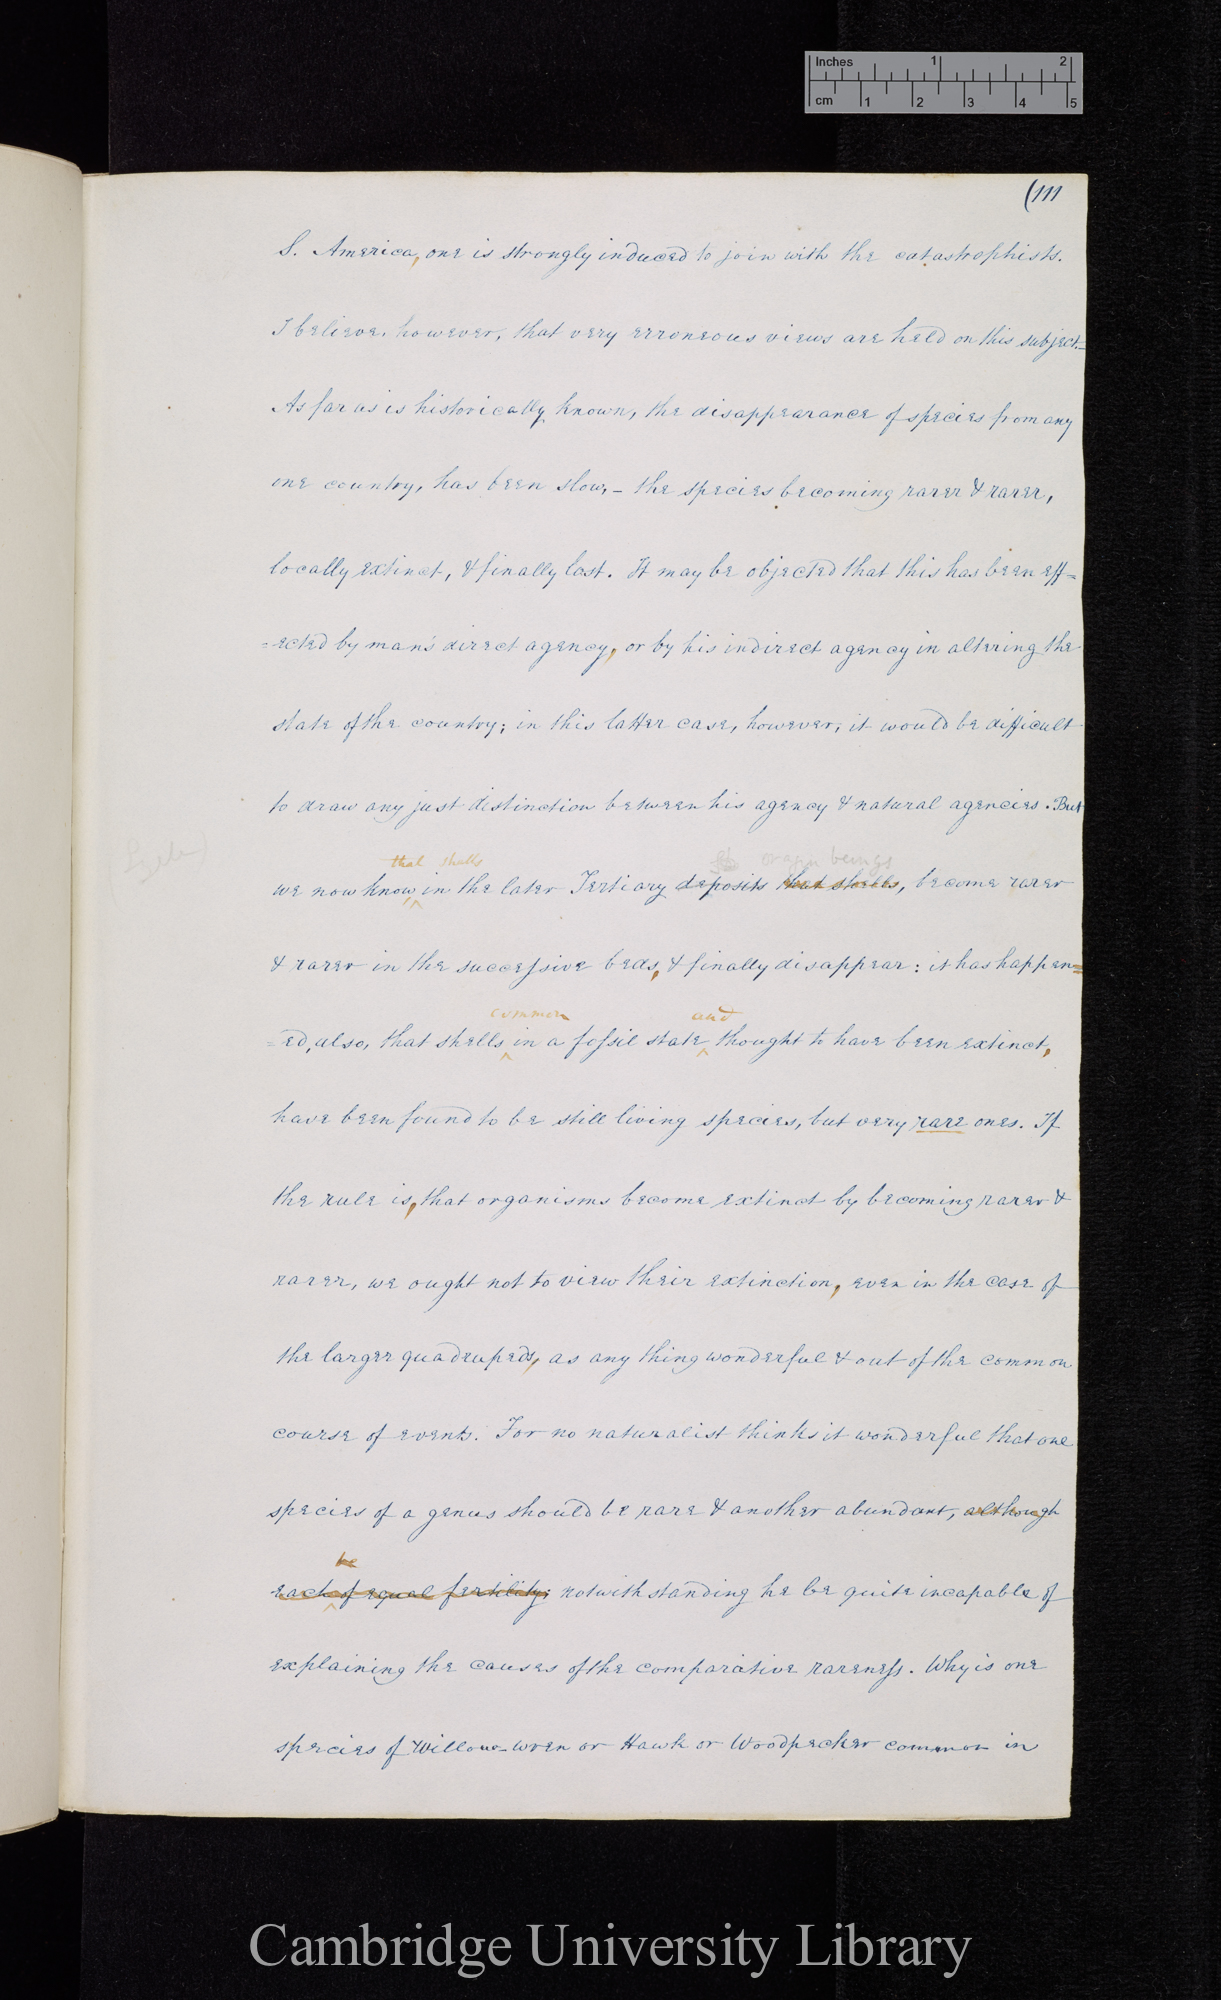 Inches 1 2
cm 1 2 3 4 5
(111
S. America, one is strongly induced to join with the catastrophists.
I believe, however, that very erroneous views are held on this subject.=
As far as is historically known, the disappearance of species from any
one country, has been slow, – the species becoming rarer & rarer,
locally extinct, & finally lost. It may be objected that this has been eff=
=ected by man's direct agency, or by his indirect agency in altering the
state of the country; in this latter case, however, it would be difficult
to draw any just distinction between his agency & natural agencies. But
that shells organ beings
we now know in the later Tertiary deposits that shells, become rarer
& rarer in the successive beds, & finally disappear: it has happen=
common and
=ed, also, that shells in a fossil state thought to have been extinct,
have been found to be still living species, but very rare ones. If
the rule is, that organisms become extinct by becoming rarer &
rarer, we ought not to view their extinction, even in the case of
the larger quadrupeds, as any thing wonderful & out of the common
course of events. For no naturalist thinks it wonderful that one
species of a genus should be rare & another abundant, although
be
each of equal fertility; notwithstanding he be quite incapable of
explaining the causes of the comparative rareness. Why is one
species of Willow-wren or Hawk or Woodpecker common in
Cambridge University Library